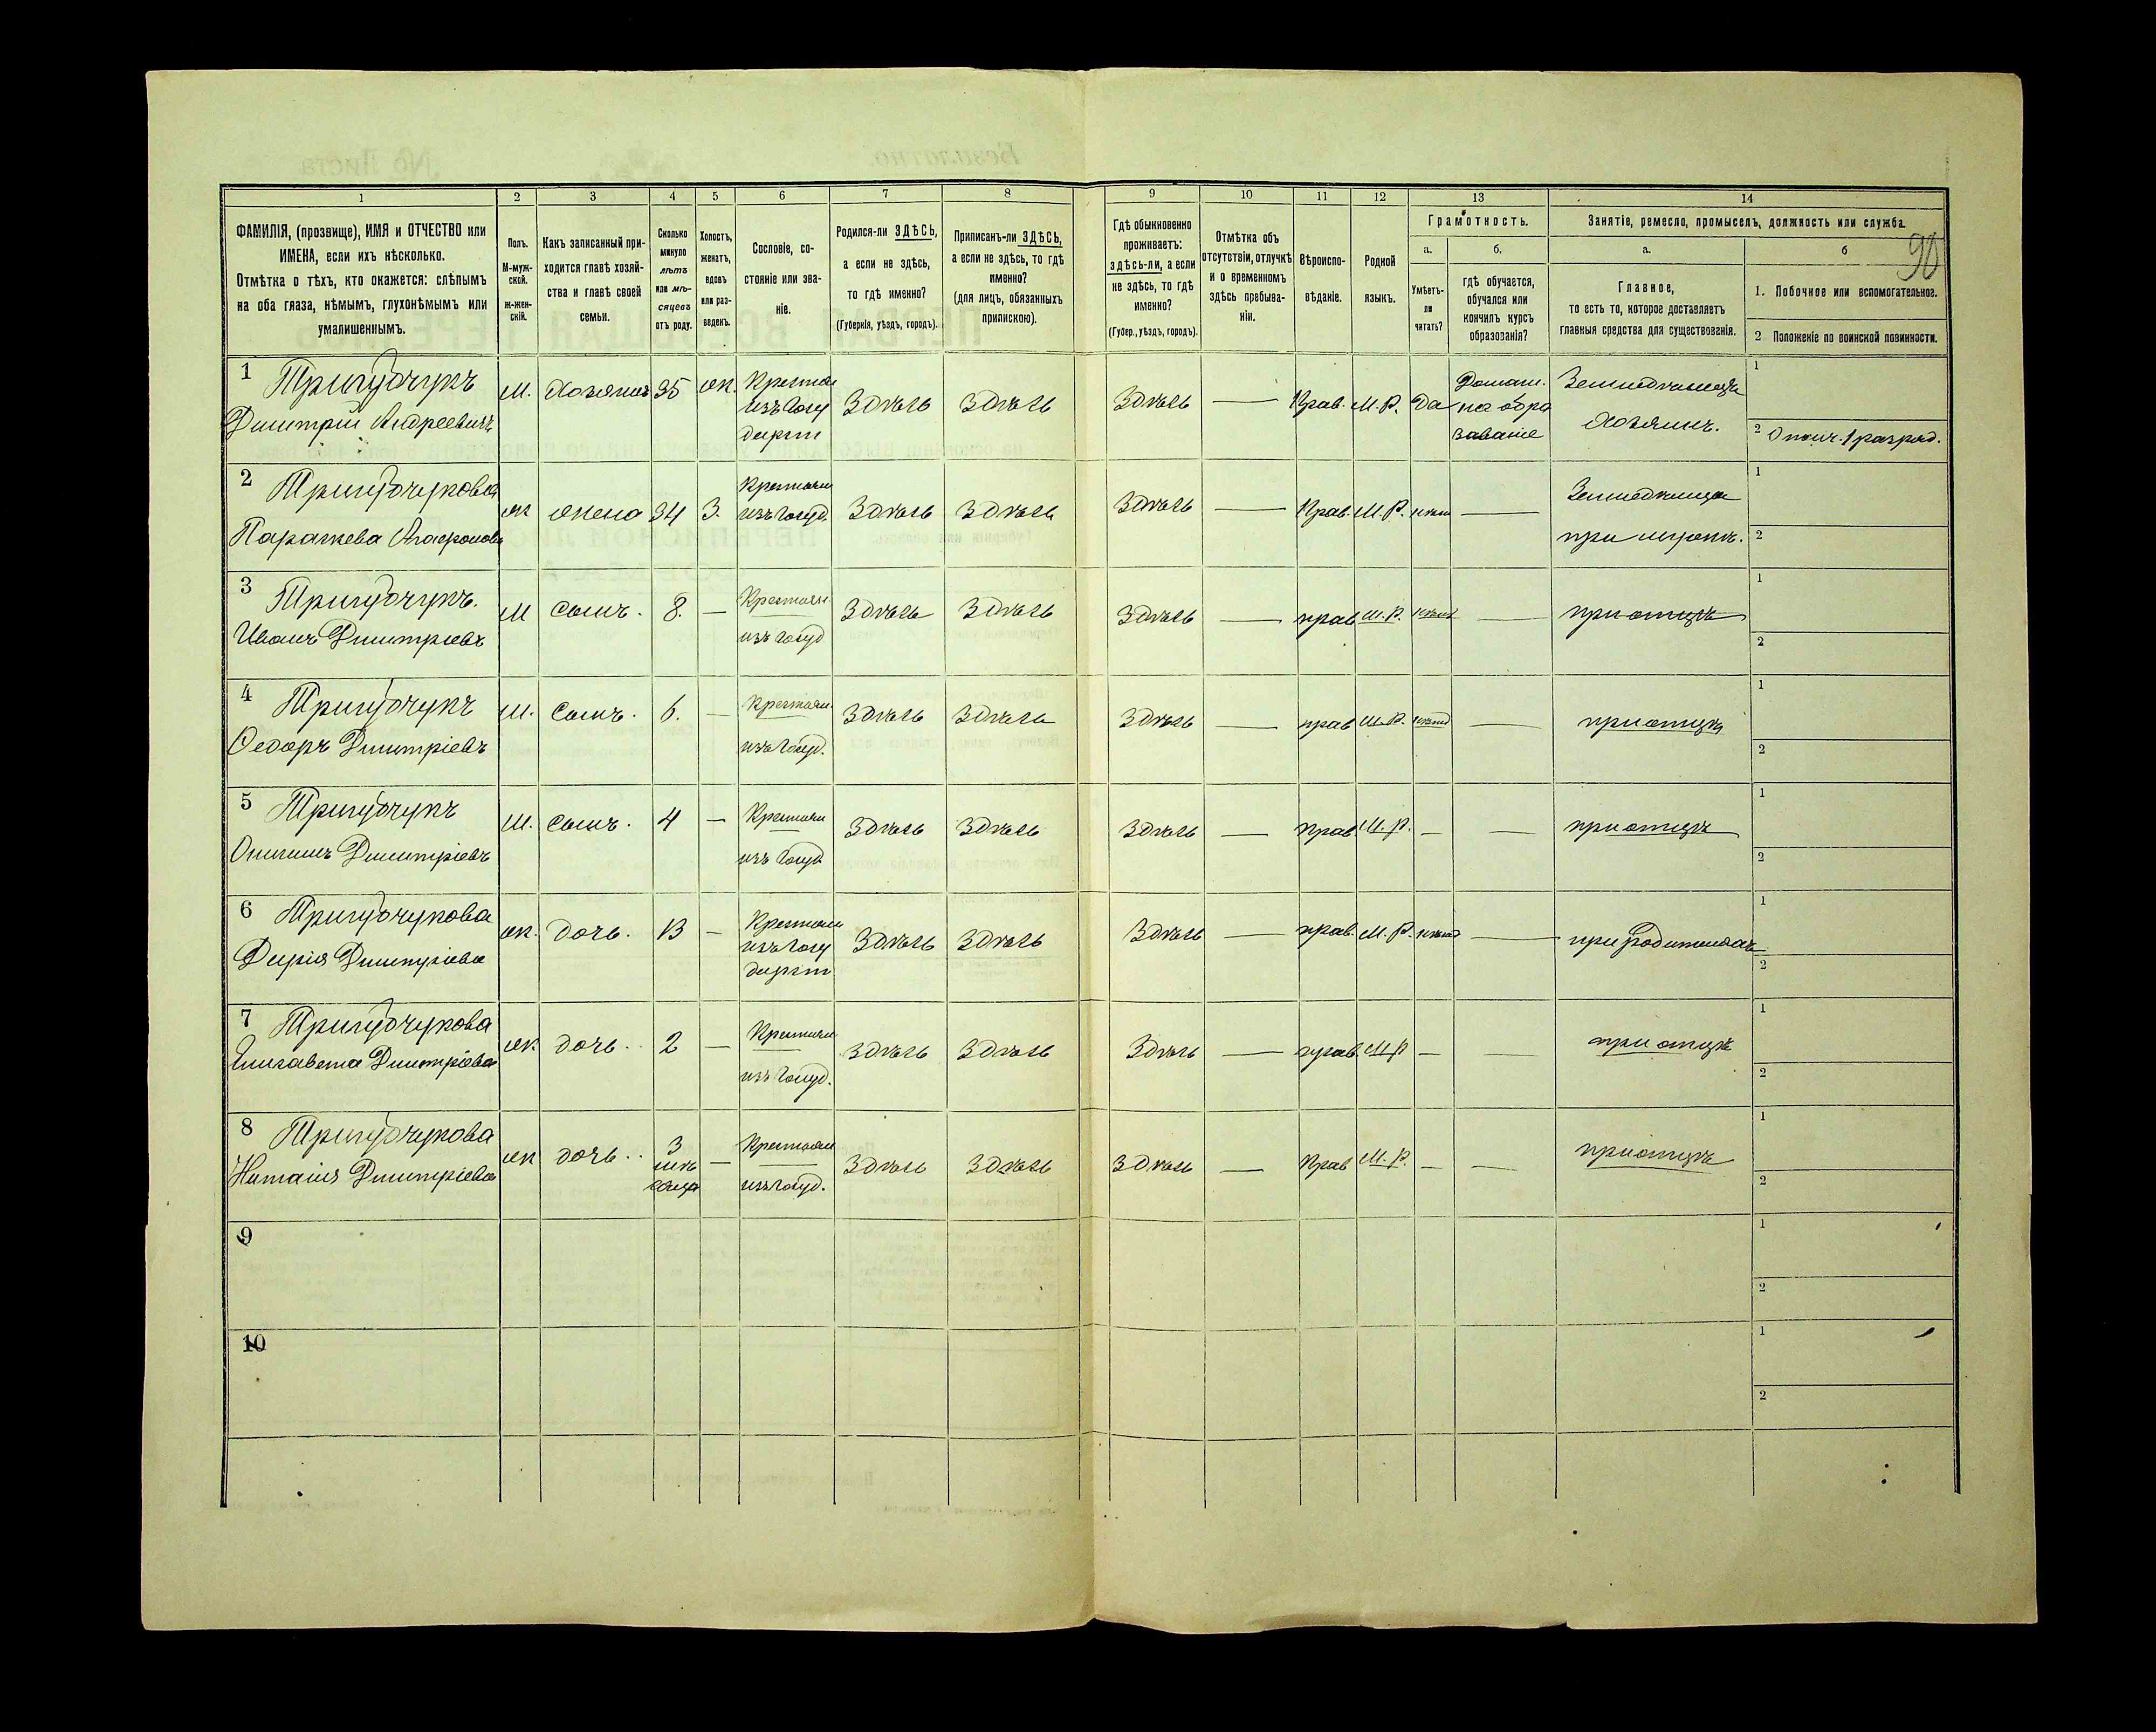 1 2 3 4 5 6 7 8 9 10 11 12 13 14
ФАМИЛІЯ, (прозвище), ИМЯ и ОТЧЕСТВО или
ИМЕНА, если ихъ нѣсколько.
Отмѣтка о тѣхъ, кто окажется: слѣпымъ
на оба глаза, нѣмымъ, глухонѣмымъ или
умалишеннымъ.
Полъ.
М-муж-
ской.
Ж-жен-
скій.
Какъ записанный при-
ходится главѣ хозяй-
ства и главѣ своей
семьи.
Сколько
минуло
лѣтъ
или мѣ-
сяцевъ
отъ роду.
Холостъ,
женатъ,
вдовъ
или раз-
веденъ.
Сословіе, со-
стояніе или зва-
ніе.
Родился-ли ЗДѢСЬ,
а если не здѣсь,
то гдѣ именно?
(Губернія, уѣздъ, городъ).
Приписанъ-ли ЗДѢСЬ,
а если не здѣсь, то гдѣ
именно?
(для лицъ, обязанныхъ
припискою).
Гдѣ обыкновенно
проживаетъ:
здѣсь-ли, а если
не здѣсь, то гдѣ
именно?
(Губер., уѣздъ, городъ).
Отмѣтка объ
отсутствіи, отлучкѣ
и о временномъ
здѣсь пребыва-
ніи.
Вѣроиспо-
вѣданіе.
Родной
языкъ.
Грамотность.
а.
Умѣетъ-
ли
читать?
б.
гдѣ обучается,
обучался или
кончилъ курсъ
образованія?
Занятіе, ремесло, промыселъ, должность или служба.
90
а.
Главное,
то есть то, которое доставляетъ
главныя средства для существованія.
б
1. Побочное или вспомогательное.
2 Положеніе по воинской повинности.
1 Тригубчукъ
Дмитрій Андреевичъ
М. Хозяинъ 35 Ж. Крестья
изъ Госу
дарст
Здѣсь Здѣсь Здѣсь — Прав. М.Р. Да Домаш.
на обра
зованіе
Земледѣлецъ
Хозяинъ.
1
2 Ополч. 1 разряд.
2 Тригубчукова
Параскева
Ж жена 34 З. Крестьян
изъ Госуд.
Здѣсь Здѣсь Здѣсь — Прав. М.Р. нѣт —
при мужѣ.
1
2
3 Тригубчукъ.
Иванъ Дмитріевъ
М Сынъ. 8. — Крестьян
изъ Госуд
Здѣсь Здѣсь Здѣсь — прав М.Р. нѣтъ — при отцѣ
1
2
4 Тригубчукъ
Ѳедоръ Дмитріевъ
М. Сынъ. 6. — Крестьян.
изъ Госуд.
Здѣсь Здѣсь Здѣсь — прав М.Р. нѣтъ — при отцѣ
1
2
5 Тригубчукъ
Дмитріевъ
М. Сынъ. 4 — Крестьян
изъ Госуд
Здѣсь Здѣсь Здѣсь — прав. М.Р. — — при отцѣ
1
2
6 Тригубчукова
Дарія Дмитріева
Ж. дочь. 13 — Крестьян
изъ Госу
дарст
Здѣсь Здѣсь Здѣсь — прав. М.Р. нѣтъ — при родителяхъ
1
2
7 Тригубчукова
Елизавета Дмитріева
Ж дочь. 2 — Крестьян
изъ Госуд.
Здѣсь Здѣсь Здѣсь — прав. М.Р — — при отцѣ
1
2
8 Тригубчукова
Наталія Дмитріева
Ж дочь. 3
мѣ
сяца
— Крестьян
изъ Госуд.
Здѣсь Здѣсь Здѣсь — Прав М.Р. — — при отцѣ
1
2
9
1
2
10
1
2